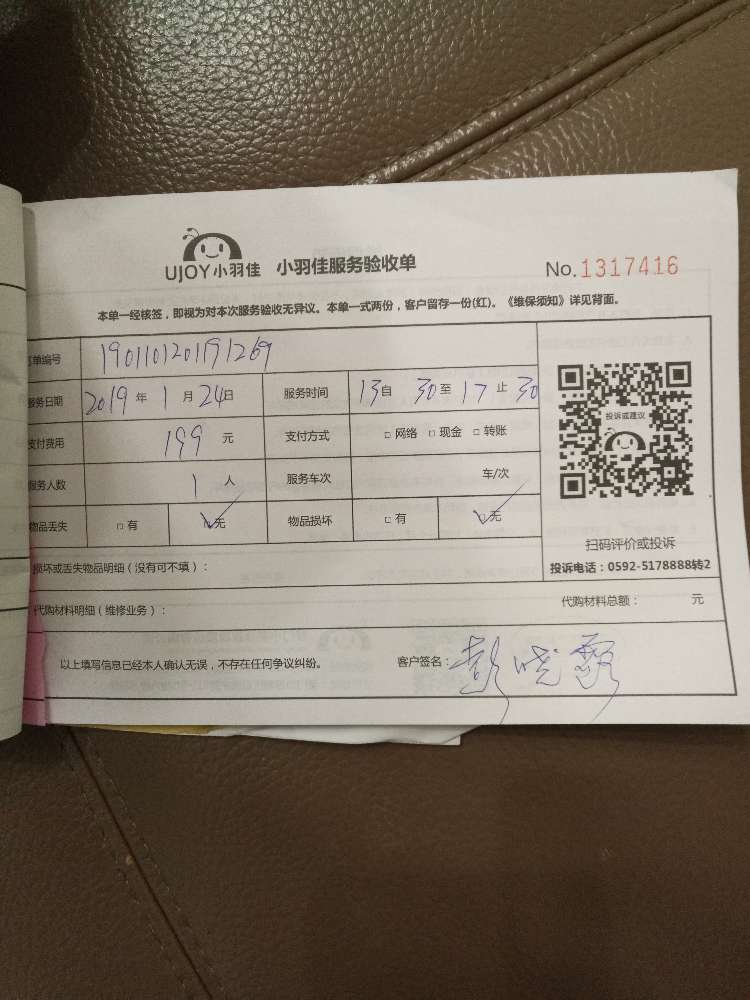 UJOY小羽佳 小羽佳服务验收单 No. 1317416
本单一经核签，即视为对本次服务验收无异议。本单一式两份，客户留存一份(红)。《维保须知》详见背面。
单编号 190110120191269
服务日期 2019 年 1 月 24 日 服务时间 13 自 30 至 17 止 30
支付费用 199 元 支付方式 □ 网络 □ 现金 □ 转账
服务人数 1 人 服务车次 车/次
物品丢失 □ 有 ☑ 无 物品损坏 □ 有 ☑ 无
投诉或建议
扫码评价或投诉
投诉电话：0592-5178888转2
损坏或丢失物品明细（没有可不填）：
代购材料明细（维修业务）： 代购材料总额： 元
以上填写信息已经本人确认无误，不存在任何争议纠纷。 客户签名：彭晓